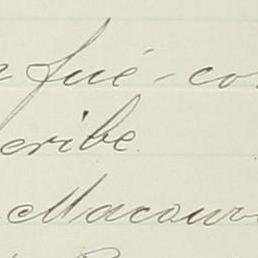 fué - co
cribe.
Macour